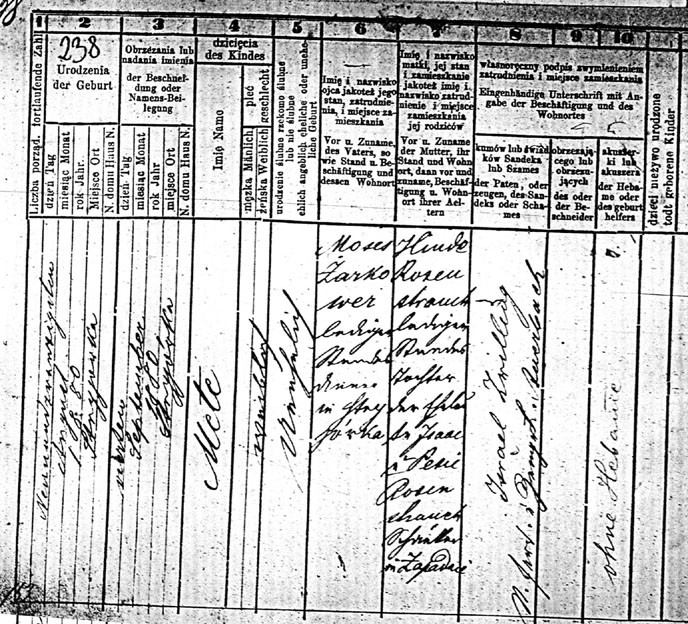 1
2
3
4
5
6
7
8
9
10
Liczba porząd. fortlaufende Zahl
238
Urodzenia
der Geburt
dzień Tag
miesiąc Monat
rok Jahr.
Miejsce Ort
N. domu Haus N.
Obrzezania lub
nadania imienia
der Beschnei-
dung oder
Namens-Bei-
legung
dzień Tag
miesiąc Monat
rok Jahr
miejsce Ort
N. domu Haus N.
dziecięcia
des Kindes
Imię Name
płeć geschlecht
męzka Mädlich
żeńska Weiblich
urodzenie ślubne rzekomo ślubne
lub nie ślubne
ehlich angeblich ehliche oder unehe-
liche Geburt
Imię i nazwisko
ojca jakoteż jego
stan, zatrudnie-
nia, i miejsce za-
mieszkania
Vor u. Zuname,
des Vaters, so-
wie Stand u. Be-
schäftigung und
dessen Wohnort
Imię i nazwisko
matki, jej stan
i zamieszkanie
jakoteż imię i.
nazwisko zatrud-
nienie i miejsce
zamieszkania
jej rodziców
Vor u. Zuname
der Mutter, ihr
Stand und Wohn
ort, dann vor und
zuname, Beschäf-
tigung u. Wohn-
ort ihrer Ael-
tern
własnoręczny podpis zwymienieniem
zatrudnienia i miejsce zamieszkania
Eingenhändige Unterschrift mit An-
gabe der Beschäftigung und des
Wohnortes
kumów lub świad
ków Sandeka
lub Szames
der Paten, oder
zeugen, des San-
deks oder Scha-
mes
obrzezają-
cego lub
obrzezu-
jących
des oder
der Be-
schneider
akuszer-
ki lub
akuszera
der Heba-
me oder
des geburt
helfers
dzieci nieżywo urodzone
todt geborene Kinder
Neunundzwanzigsten
August
1880
September
1880
Mete
weiblich
Unehelich
Moses
Żarko
wer
ledigen
Standes
in Stry
jówka
Hinde
Rosen
strauch
ledigen
Standes
Tochter
der Ehele
te Isaac
Rosen
strauch
in
Israel Zwilling
Auerbach
ohne Hebame